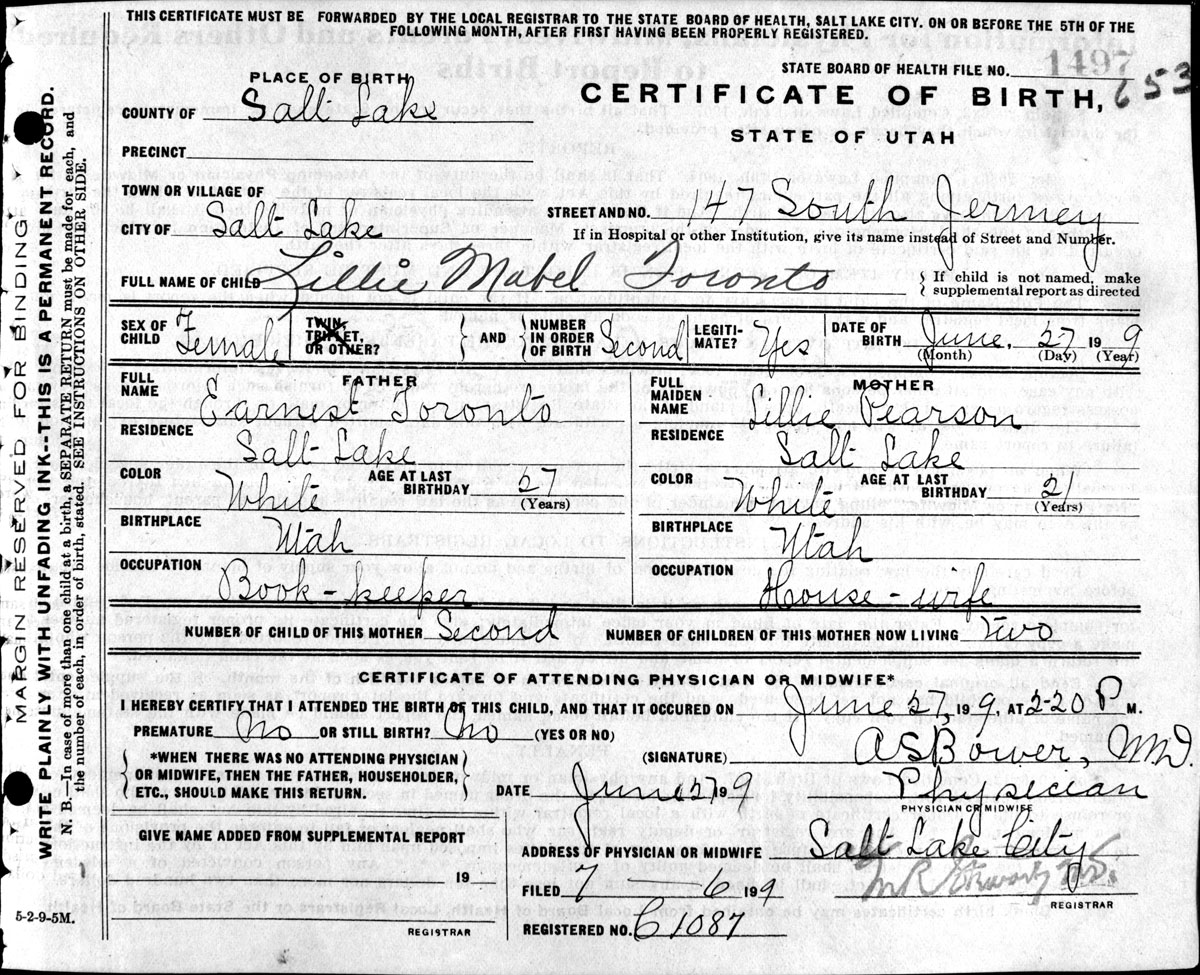 THIS CERTIFICATE MUST BE FORWARDED BY THE LOCAL REGISTRAR TO THE STATE BOARD OF HEALTH, SALT LAKE CITY. ON OR BEFORE THE 5TH OF THE
FOLLOWING MONTH, AFTER FIRST HAVING BEEN PROPERLY REGISTERED.
STATE BOARD OF HEALTH FILE NO. 1497
PLACE OF BIRTH
CERTIFICATE OF BIRTH, 653
COUNTY OF Salt Lake
STATE OF UTAH
PRECINCT
TOWN OR VILLAGE OF
CITY OF Salt Lake
STREET AND NO. 147 South Jermey
If in Hospital or other Institution, give its name instead of Street and Number.
FULL NAME OF CHILD Lillie Mabel Toronto
If child is not named, make
supplemental report as directed
SEX OF CHILD Female
TWIN, TRIPLET, OR OTHER? AND NUMBER IN ORDER OF BIRTH Second
LEGITI-MATE? Yes
DATE OF BIRTH June, 27 19 9
(Month) (Day) (Year)
FATHER
FULL NAME Earnest Toronto
RESIDENCE
Salt Lake
COLOR White AGE AT LAST BIRTHDAY 27 (Years)
BIRTHPLACE
Utah
OCCUPATION
Book-keeper
MOTHER
FULL MAIDEN NAME Lillie Pearson
RESIDENCE
Salt Lake
COLOR White AGE AT LAST BIRTHDAY 21 (Years)
BIRTHPLACE
Utah
OCCUPATION
House-wife
NUMBER OF CHILD OF THIS MOTHER Second NUMBER OF CHILDREN OF THIS MOTHER NOW LIVING Two
CERTIFICATE OF ATTENDING PHYSICIAN OR MIDWIFE*
I HEREBY CERTIFY THAT I ATTENDED THE BIRTH OF THIS CHILD, AND THAT IT OCCURED ON June 27, 19 9, AT 2-20 P M.
PREMATURE No OR STILL BIRTH? No (YES OR NO)
(SIGNATURE) A S Bower, M.D.
*WHEN THERE WAS NO ATTENDING PHYSICIAN
OR MIDWIFE, THEN THE FATHER, HOUSEHOLDER,
ETC., SHOULD MAKE THIS RETURN.
DATE June 19 9 Physician
PHYSICIAN OR MIDWIFE
GIVE NAME ADDED FROM SUPPLEMENTAL REPORT
19
REGISTRAR
ADDRESS OF PHYSICIAN OR MIDWIFE Salt Lake City
FILED 7 - 6 19 9
REGISTRAR
REGISTERED NO. C1087
5-2-9-5M.
MARGIN RESERVED FOR BINDING
WRITE PLAINLY WITH UNFADING INK--THIS IS A PERMANENT RECORD.
N. B.—In case of more than one child at a birth, a SEPARATE RETURN must be made for each, and
the number of each, in order of birth, stated. SEE INSTRUCTIONS ON OTHER SIDE.